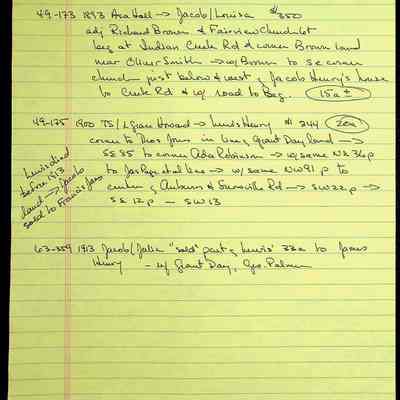 49-173 1893 Asa Hall → Jacob/Louisa $350
adj Richard Brown & Fairview Church lot
beg at Indian Creek Rd & corner Brown land
near Oliver Smith → w/ Brown to SE corner
church just below & west of Jacob Henry's house
to Creek Rd & w/ road to Beg. 15a ±
49-175 1900 TS/ Howard → Lewis Henry $244 20a
corner to Thos Jones in line of Grant Day land →
SE 85 to corner Robinson → w/ same N 36p
to line → w/ same NW 91 p to
center of Auburn & Rd → SW 22p →
SE 12p - SW 13
Lewis died
before 1913
land → Jacob
sold to Francis Jones
63-359 1913 Jacob/Julia "sold" part of Lewis' 33a to James
Henry - w/ Grant Day, Geo. Palmer